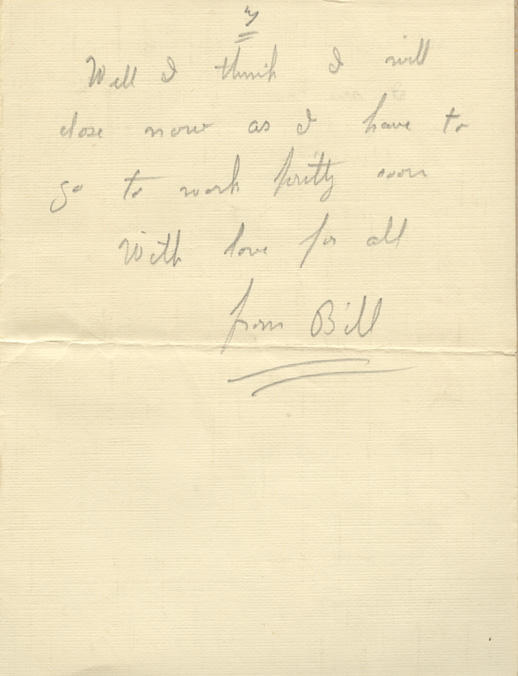 Well I think I will
close now as I have to
go to work pritty soon
With love for all
from Bill